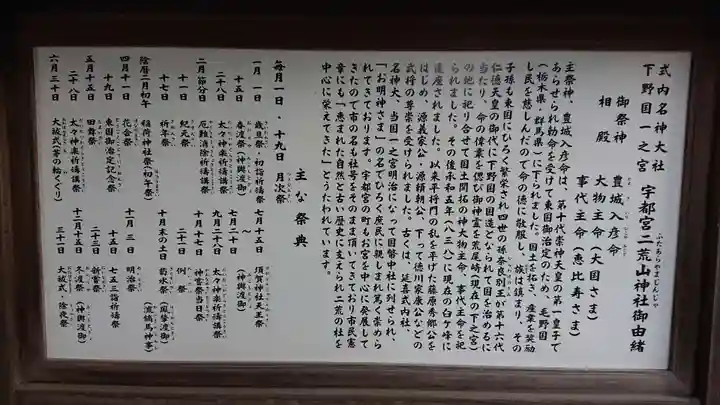 式内名神大社
下野国一之宮
宇都宮二荒山神社御由緒
ふたあらやまじんじゃ
御祭神 豊城入彦命
相殿 大物主命(大国さま)
事代主命(恵比寿さま)
主祭神、豊城入彦命は、第十代崇神天皇の第一皇子で
あらせられ勅命を受けて東国御治定のため、毛野国
(栃木県・群馬県)に下られました。国土を拓き、産業を奨励
し民を慈しんだので命の徳に敬服し、族は鎮まり、その
子孫も東国にひろく繁栄され四世の孫奈良別王が第十六代
仁徳天皇の御代に下野国の国造となられて国を治めるに
当たり、命の偉業を偲び御神霊を荒尾崎(現在の下之宮)
の地に祀り合せて国土開拓の神大物主命、事代主命を祀
られました。その後承和五年(八三八)に現在の臼ケ峰に
遷座されました。以来平将門の乱を平げた藤原秀郷公を
はじめ、源義家公、源頼朝公、下って徳川家康公などの
武将の尊崇を受けられました。古くは、延喜式内社、
名神大、当国一之宮明治になって国幣中社に列せられ、
「お明神さま」の名でひろく庶民に親しまれ篤く崇めら
れてきております。宇都宮の町もお宮を中心に発展して
きたので市の名も社号をそのまま頂いてきており市民憲
章にも「恵まれた自然と古い歴史に支えられ二荒の杜を
中心に栄えてきた」とうたわれています。
主な祭典
毎月一日 十九日 月次祭
一月一日 歳旦祭・初詣祈祷祭
十五日 春渡祭(神輿渡御)
二十八日 太々神楽祈祷講祭
二月節分 厄難消除祈祷講祭
十一日 紀元祭
十七日 祈年祭
陰暦二月初午 稲荷神社祭(初午祭)
四月十一日 花会祭
十九日 東国御治定記念祭
五月十五日 田舞祭
二十八日 太々神楽祈祷講祭
六月三十日 大祓式(茅の輪くぐり)
七月十五日 須賀神社天王祭
〜 (神輿渡御)
七月二十日 (神輿渡御)
九月二十八日 太々神楽祈祷講祭
十月十七日 神嘗祭当日祭
二十一日 例祭
十月末の土日 菊水祭(鳳輦渡御)
(流鏑馬神事)
十一月三日 明治祭
十五日 七五三詣祈祷祭
二十三日 新嘗祭
十二月十五日 冬渡祭(神輿渡御)
三十一日 大祓式・除夜祭